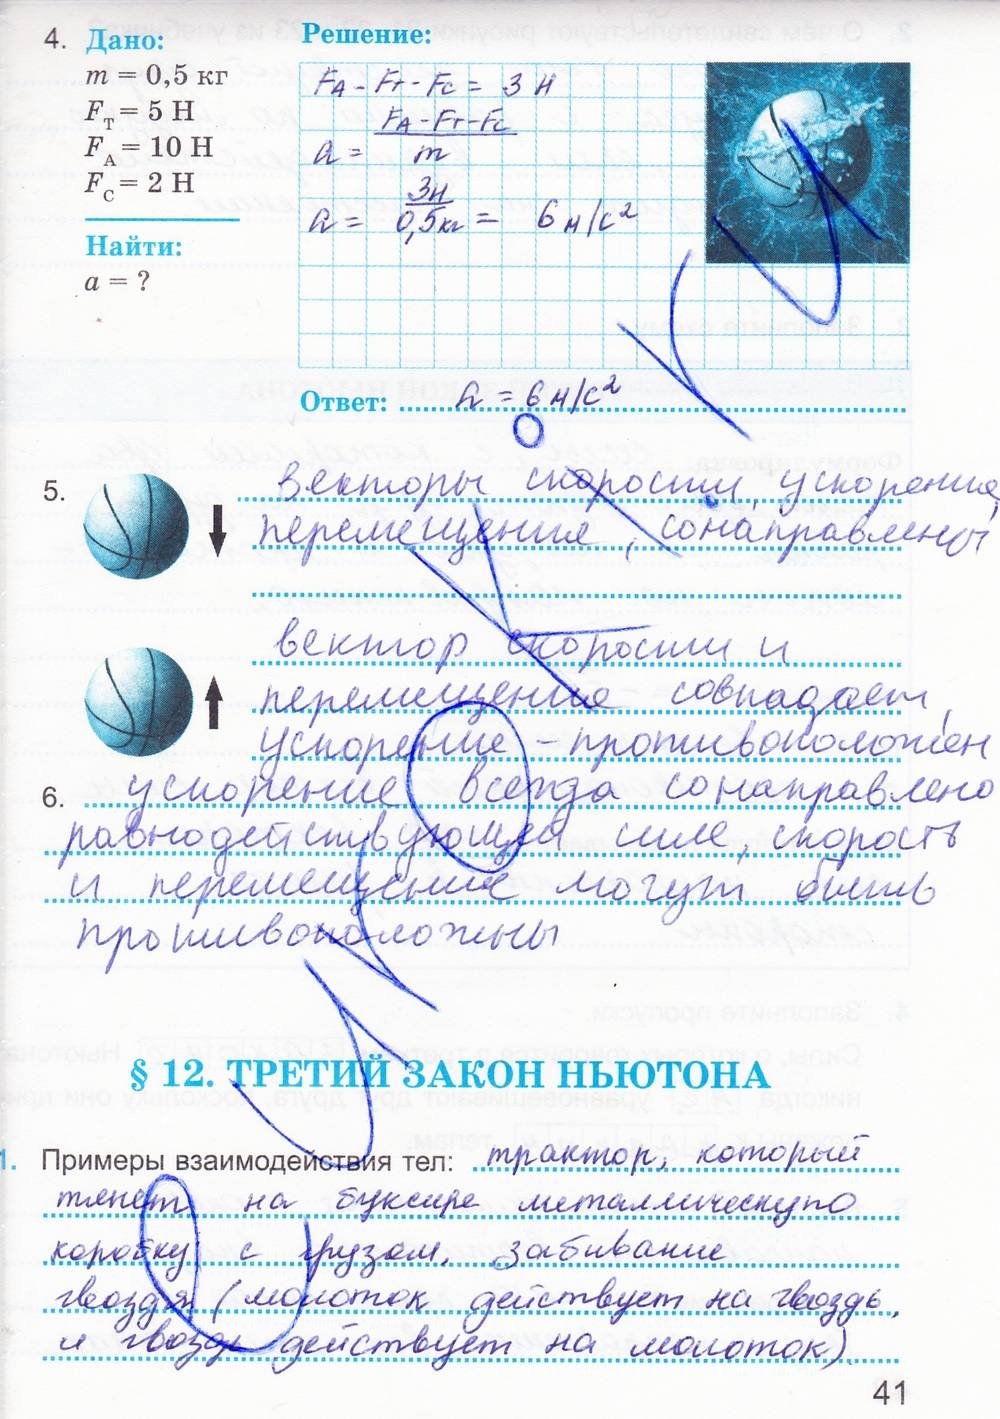 4. Дано:
m = 0,5 кг
Fт = 5 Н
FА = 10 Н
FС = 2 Н
Найти:
a = ?
Решение:
FА - Fт - Fс = 3 Н
a = FА - Fт - Fс / m
a = 3Н / 0,5кг = 6 м/с²
Ответ: a = 6 м/с²
5. векторы скорости ускорения,
перемещения, сонаправлены
вектор скорости и
перемещение совпадает,
ускорение - противоположен
6. ускорение всегда сонаправлено
равнодействующей силе, скорость
и перемещение могут быть
противоположны
§ 12. ТРЕТИЙ ЗАКОН НЬЮТОНА
1. Примеры взаимодействия тел: трактор, который
тянет на буксире металлическую
коробку с грузом, забивание
гвоздя (молоток действует на гвоздь,
и гвоздь действует на молоток)
41